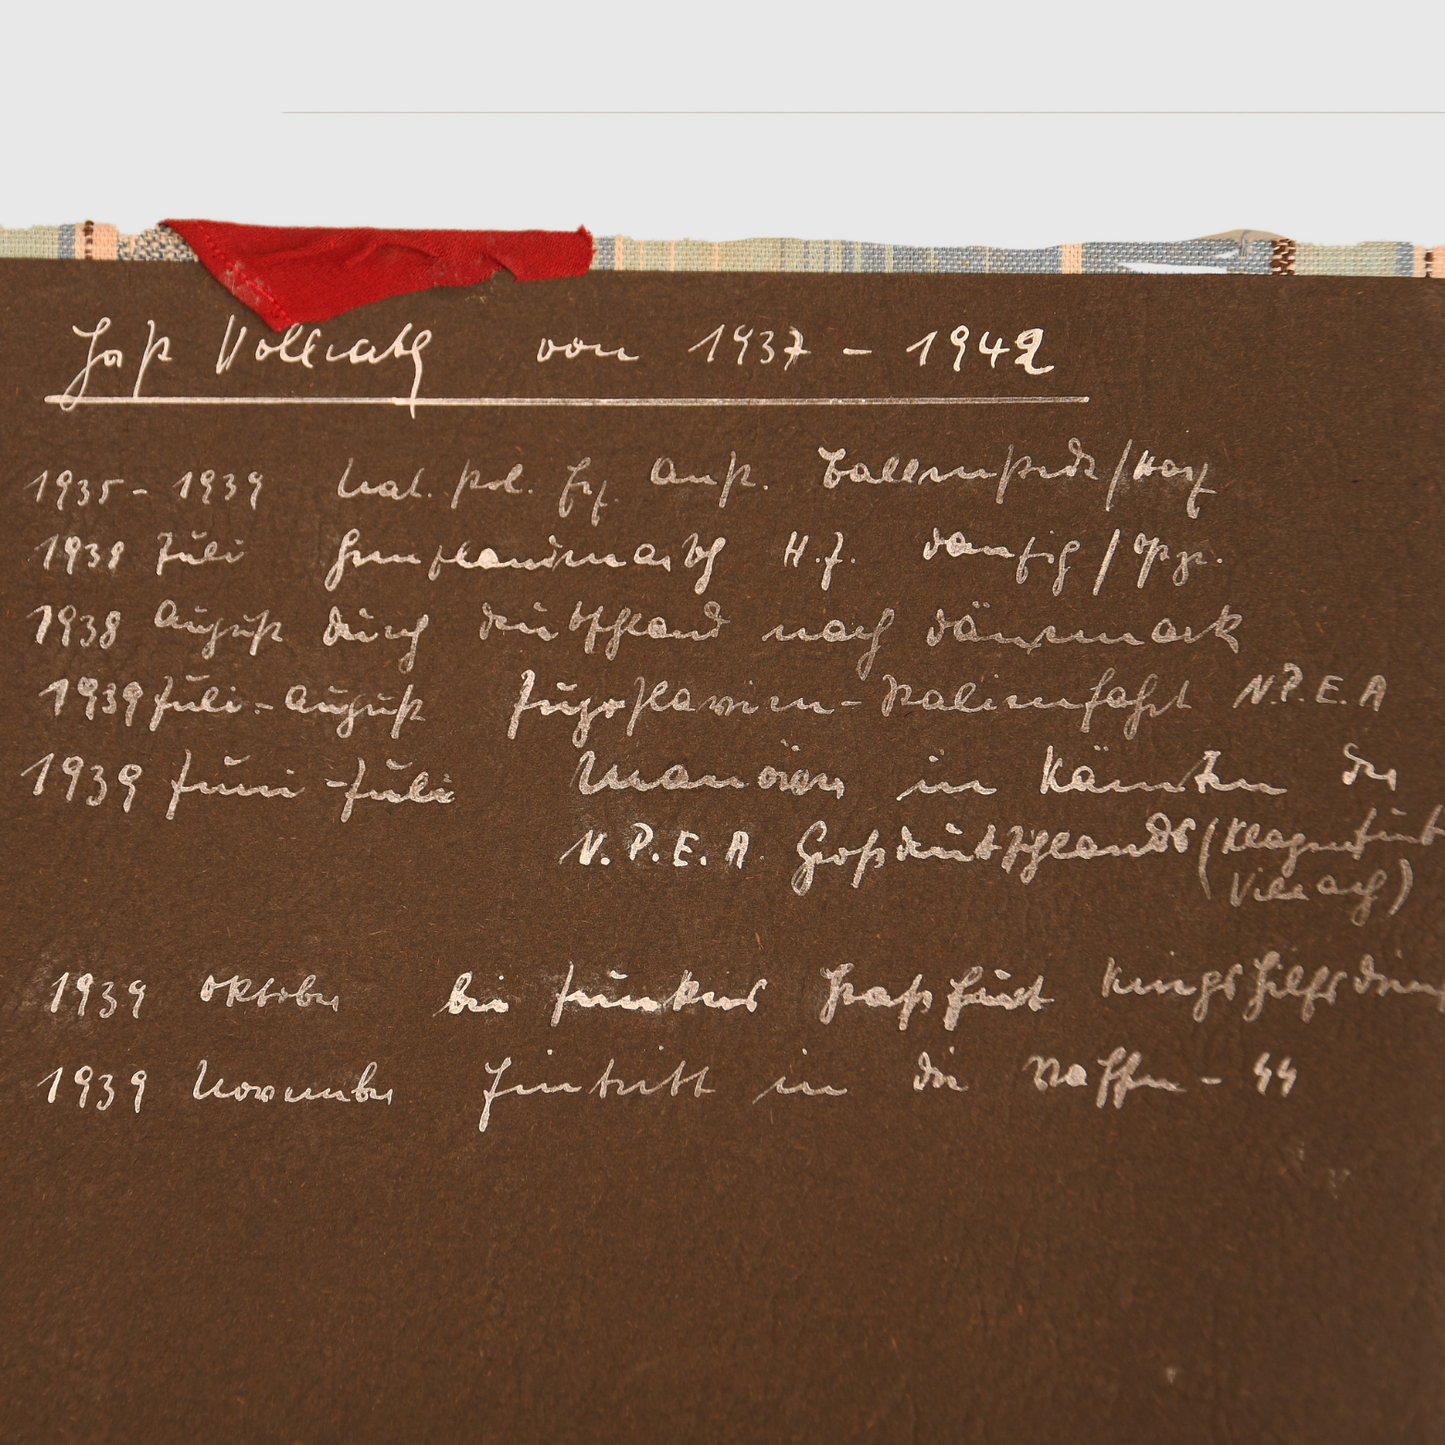 Jost Vollrath von 1937 - 1942
1935 - 1939 Nat. pol. Erz. Anst. Ballenstedt/Harz
1938 Juli Grenzlandmarsch H.J. Danzig/
1938 August durch Deutschland nach Dänemark
1939 Juli - August Jugoslavien-Italienfahrt N.P.E.A
1939 Juni - Juli Manöver in Kärnten der
N.P.E.A. Großdeutschlands (Klagenfurt
Villach)
1939 Oktober bei Junkers Kriegshilfsdienst
1939 November Eintritt in die Waffen-SS